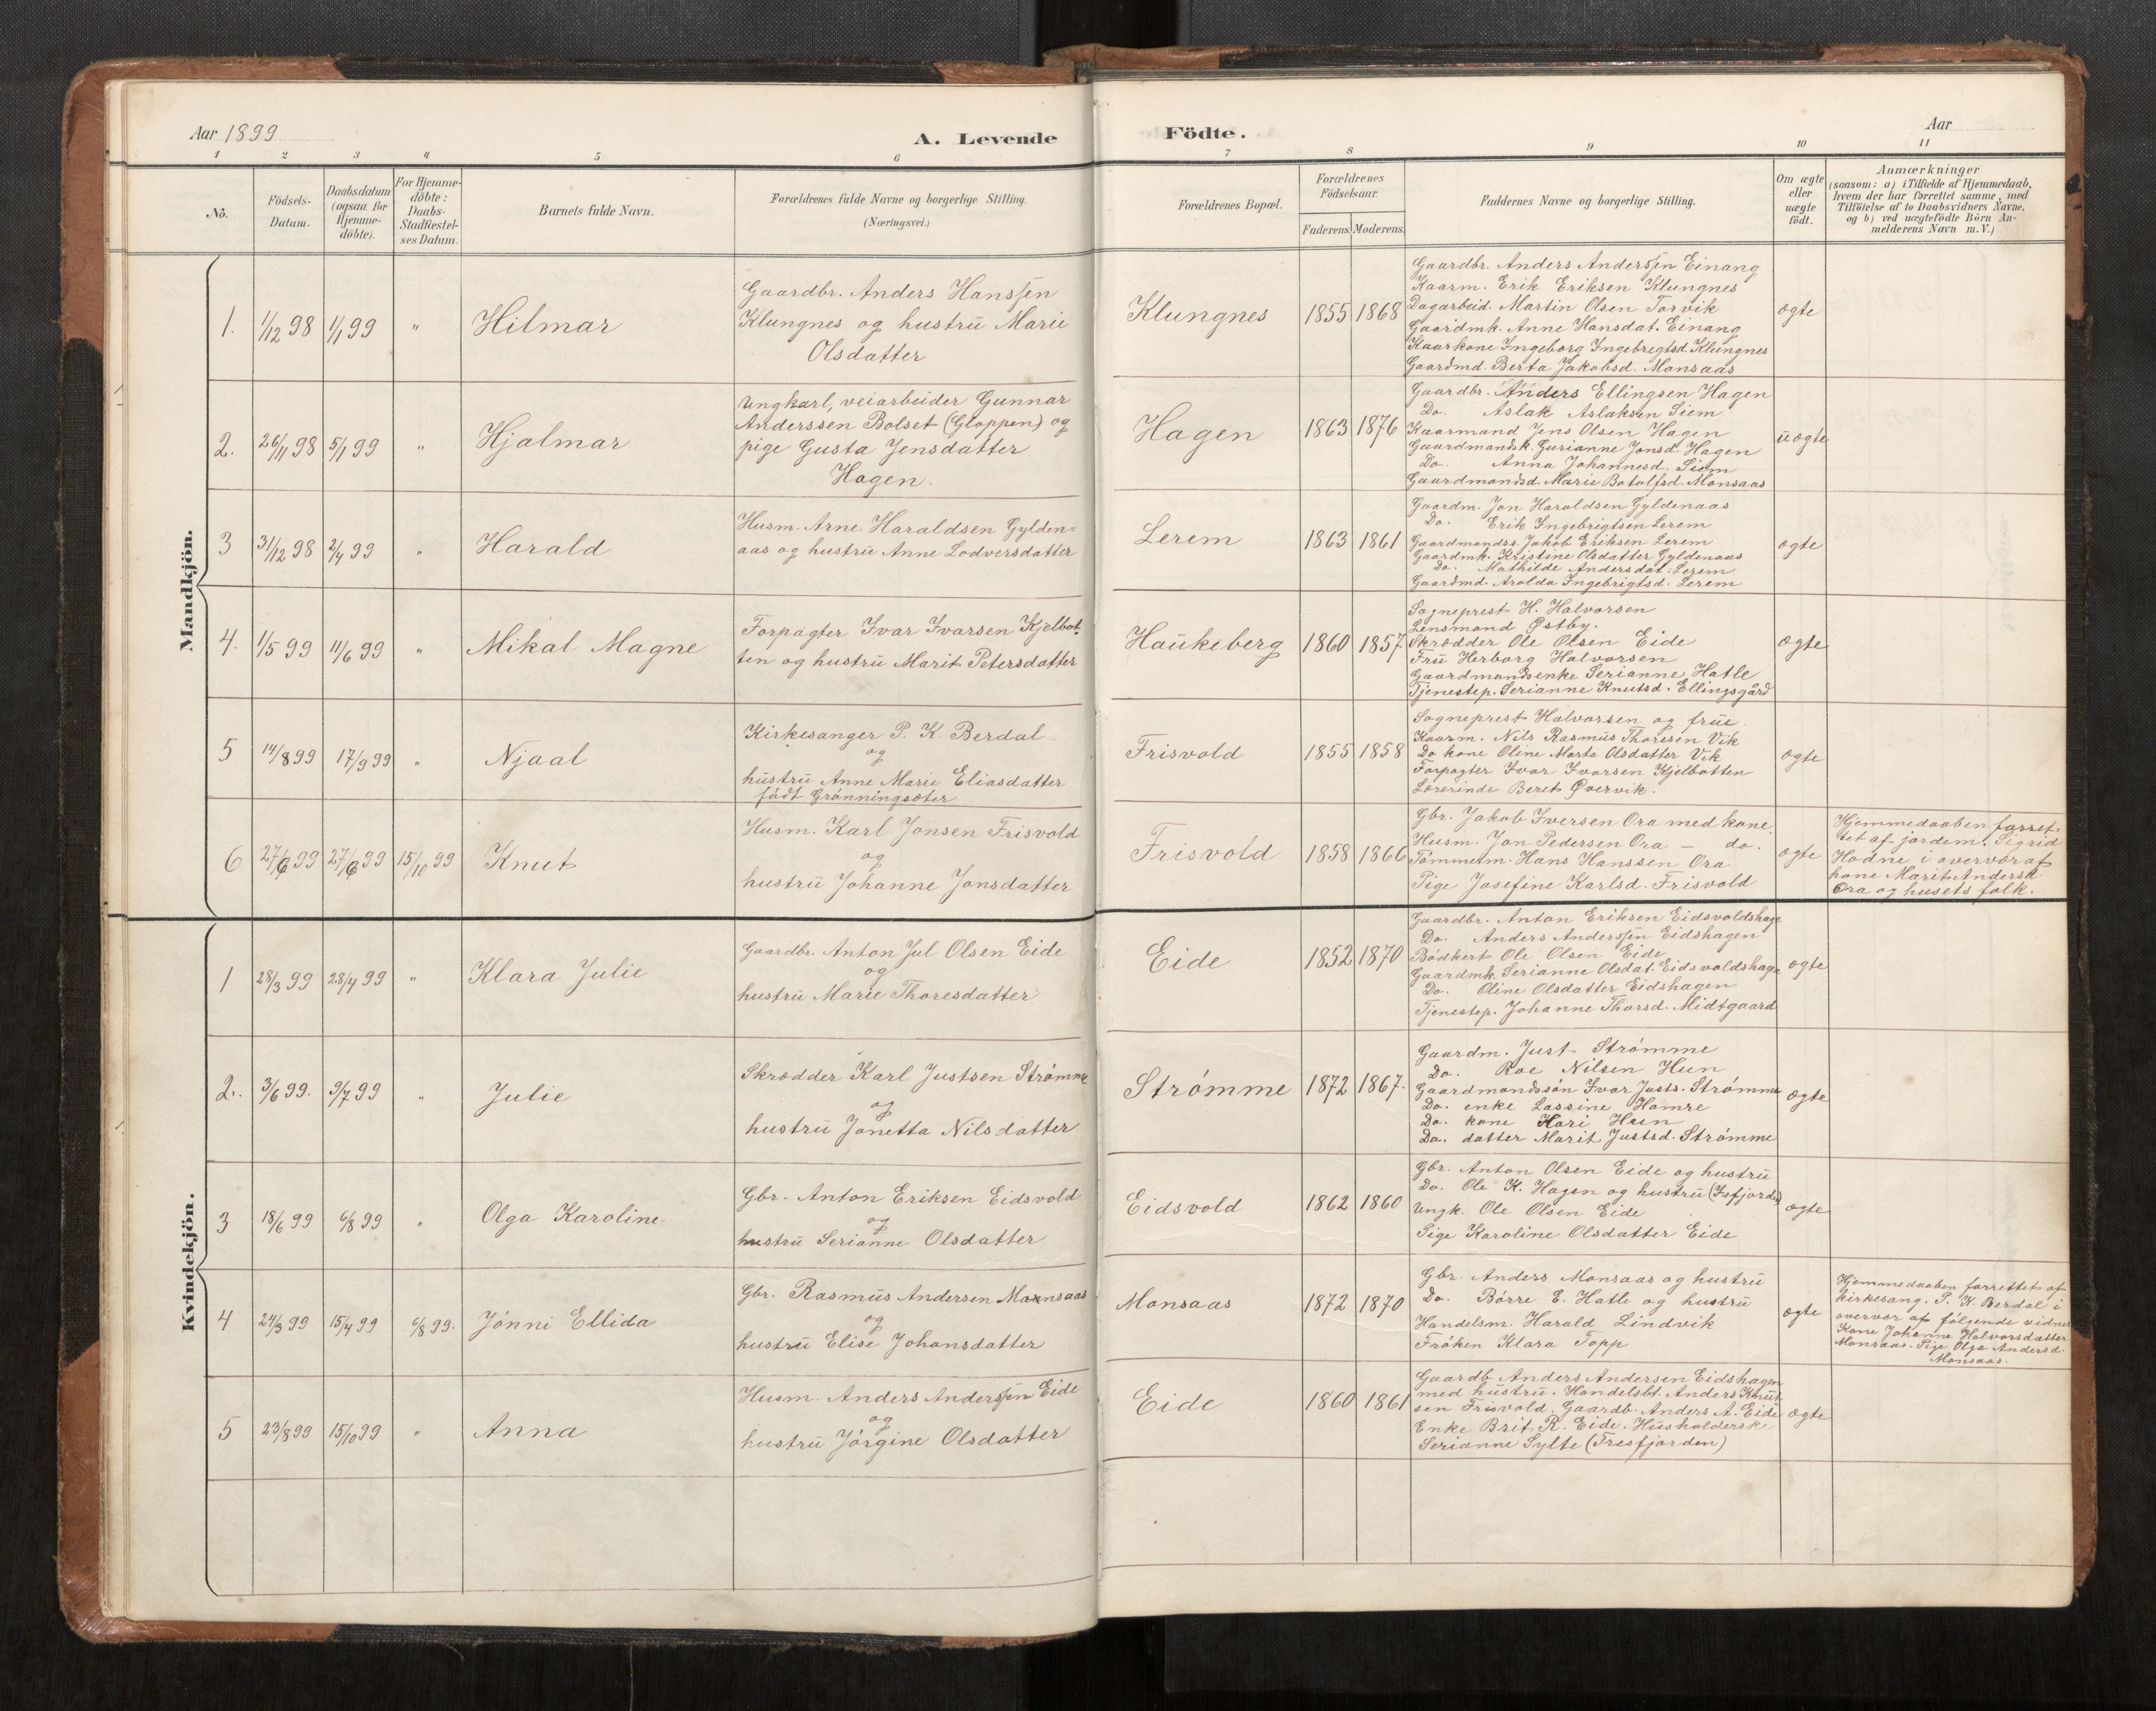 Aar 1899
A. Levende Födte.
Aar
1 2 3 4 5 6 7 8 9 10 11
No.
Födsels-Datum.
Daabsdatum (ogsaa for Hjemme-döbte).
For Hjemme-döbte: Daabs-Stadfæstel-ses Datum.
Barnets fulde Navn.
Forældrenes fulde Navne og borgerlige Stilling.
(Næringsvei.)
Forældrenes Bopæl.
Forældrenes Födselsaar.
Faderens. Moderens.
Faddernes Navne og borgerlige Stilling.
Om ægte eller uægte födt.
Anmærkninger
(saasom: a) i Tilfælde af Hjemmedaab,
hvem der har forrettet samme, med
Tilföielse af to Daabsvidners Navne,
og b) ved uægtefödte Börn An-
melderens Navn m.V.)
Mandkjön.
1. 1/12 98 1/1 99 " Hilmar
Gaardbr. Anders Hanssen
Klungnes og hustru Marie
Olsdatter
Klungnes 1855 1868
Gaardbr. Anders Anderssen Einang
Kaarm. Erik Eriksen Klungnes
Dagarbeid. Martin Olsen Torvik
Gaardmk. Anne Hansdat. Einang
Kaarkone Ingeborg Ingebrigtsd. Klungnes
Gaardmd. Berta Jakobsd. Monsaas
ægte
2. 26/11 98 5/1 99 " Hjalmar
Ungkarl, veiarbeider Gunnar
Anderssen Bolset (Gloppen) og
pige Gusta Jensdatter
Hagen.
Hagen 1863 1876
Gaardbr. Anders Ellingsen Hagen
Do. Aslak Aslaksen Siem
Kaarmand Jens Olsen Hagen
Gaardmandsk. Gurianne Jonsd. Hagen
Do. Anna Johannesd. Siem
Gaardmandsd. Marie Botolfsd. Monsaas
uægte
3 31/12 98 2/4 99 " Harald
Husm. Arne Haraldsen Gylden=
aas og hustru Anne Lodversdatter
Lerem 1863 1861
Gaardm. Jon Haraldsen Gyldenaas
Do. Erik Ingebrigtsen Lerem
Gaardmandss. Jakob Eriksen Lerem
Gaardmk. Kristine Olsdatter Gyldenaas
Do. Mathilde Andersdat. Lerem
Gaardmd. Arolda Ingebrigtsd. Lerem
ægte
4. 1/5 99 11/6 99 " Mikal Magne
Forpagter Ivar Ivarsen Kjelbot-
ten og hustru Marit Petersdatter
Haukeberg 1860 1857
Sogneprest H. Halvorsen
Lensmand Østby.
Skrædder Ole Olsen Eide
Fru Herborg Halvorsen
Gaardmandsenke Serianne Hatle
Tjenestep. Serianne Knutsd. Ellingsgård
ægte
5 14/8 99 17/9 99 " Njaal
Kirkesanger P. K. Berdal
og
hustru Anne Marie Eliasdatter
født Grønningsæter
Frisvold 1855 1858
Sogneprest Halvorsen og frue.
Kaarm. Nils Rasmus Thoresen Vik
Do kone Oline Marta Olsdatter Vik
Forpagter Ivar Ivarsen Kjelbotten
Lærerinde Beret Øvervik.
ægte
6 27/6 99 27/6 99 15/10 99 Knut
Husm. Karl Jonsen Frisvold
og
hustru Johanne Jonsdatter
Frisvold 1858 1866
Gbr. Jakob Iversen Ora med kone.
Husm. Jon Pedersen Ora - do.
Tømmerm. Hans Hanssen Ora
Pige Josefine Karlsd. Frisvold
ægte
Hjemmedaaben forret-
tet af jordem. Sigrid
Hodne i overvær af
kone Marit Andersd.
Ora og husets folk.
Kvindekjön.
1 28/3 99 28/4 99 " Klara Julie
Gaardbr. Anton Jul Olsen Eide
og
hustru Marie Thoresdatter
Eide 1852 1870
Gaardbr. Anton Eriksen Eidsvoldshage
Do. Anders Anderssen Eidshagen
Bødkert Ole Olsen Eide
Gaardmk. Serianne Olsdat. Eidsvoldshage
Do. Oline Olsdatter Eidshagen
Tjenestep. Johanne Thorsd. Midtgaard
ægte
2. 3/6 99. 9/7 99 " Julie
Skrædder Karl Justsen Strømme
og
hustru Janetta Nilsdatter
Strømme 1872 1867.
Gaardm. Just Strømme
Do. Roe Nilsen Hun
Gaardmandssøn Ivar Justs. Strømme
Do. enke Lassine Hamre
Do. kone Kari Hun
Do. datter Marit Justsd. Strømme
ægte
3 18/6 99 6/8 99 " Olga Karoline
Gbr. Anton Eriksen Eidsvold
og
hustru Serianne Olsdatter
Eidsvold 1862 1860
Gbr. Anton Olsen Eide og hustru
Do. Ole K. Hagen og hustru (Isfjorden)
Ungk. Ole Olsen Eide
Pige Karoline Olsdatter Eide
ægte
4 24/3 99 15/4 99 6/8 99. Jønni Ellida
Gbr. Rasmus Andersen Monsaas
og
hustru Elise Johansdatter
Monsaas 1872 1870
Gbr. Anders Monsaas og hustru
Do. Børre E. Hatle og hustru
Handelsm. Harald Lindvik
Frøken Klara Topp
ægte
Hjemmedaaben forrettet af
kirkesang. P. K. Berdal i
overvær af følgende vidner
Kone Johanne Halvorsdatter
Monsaas. Pige Olga Andersd.
Monsaas.
5 23/8 99 15/10 99 " Anna
Husm. Anders Anderssen Eide
og
hustru Jørgine Olsdatter
Eide 1860 1861
Gaardb. Anders Andersen Eidshagen
med hustru. Handelsbt. Anders Knut
sen Frisvold. Gaardb. Anders A. Eide
Enke Brit R. Eide. Husholderske
Serianne Sylte (Tresfjorden)
ægte